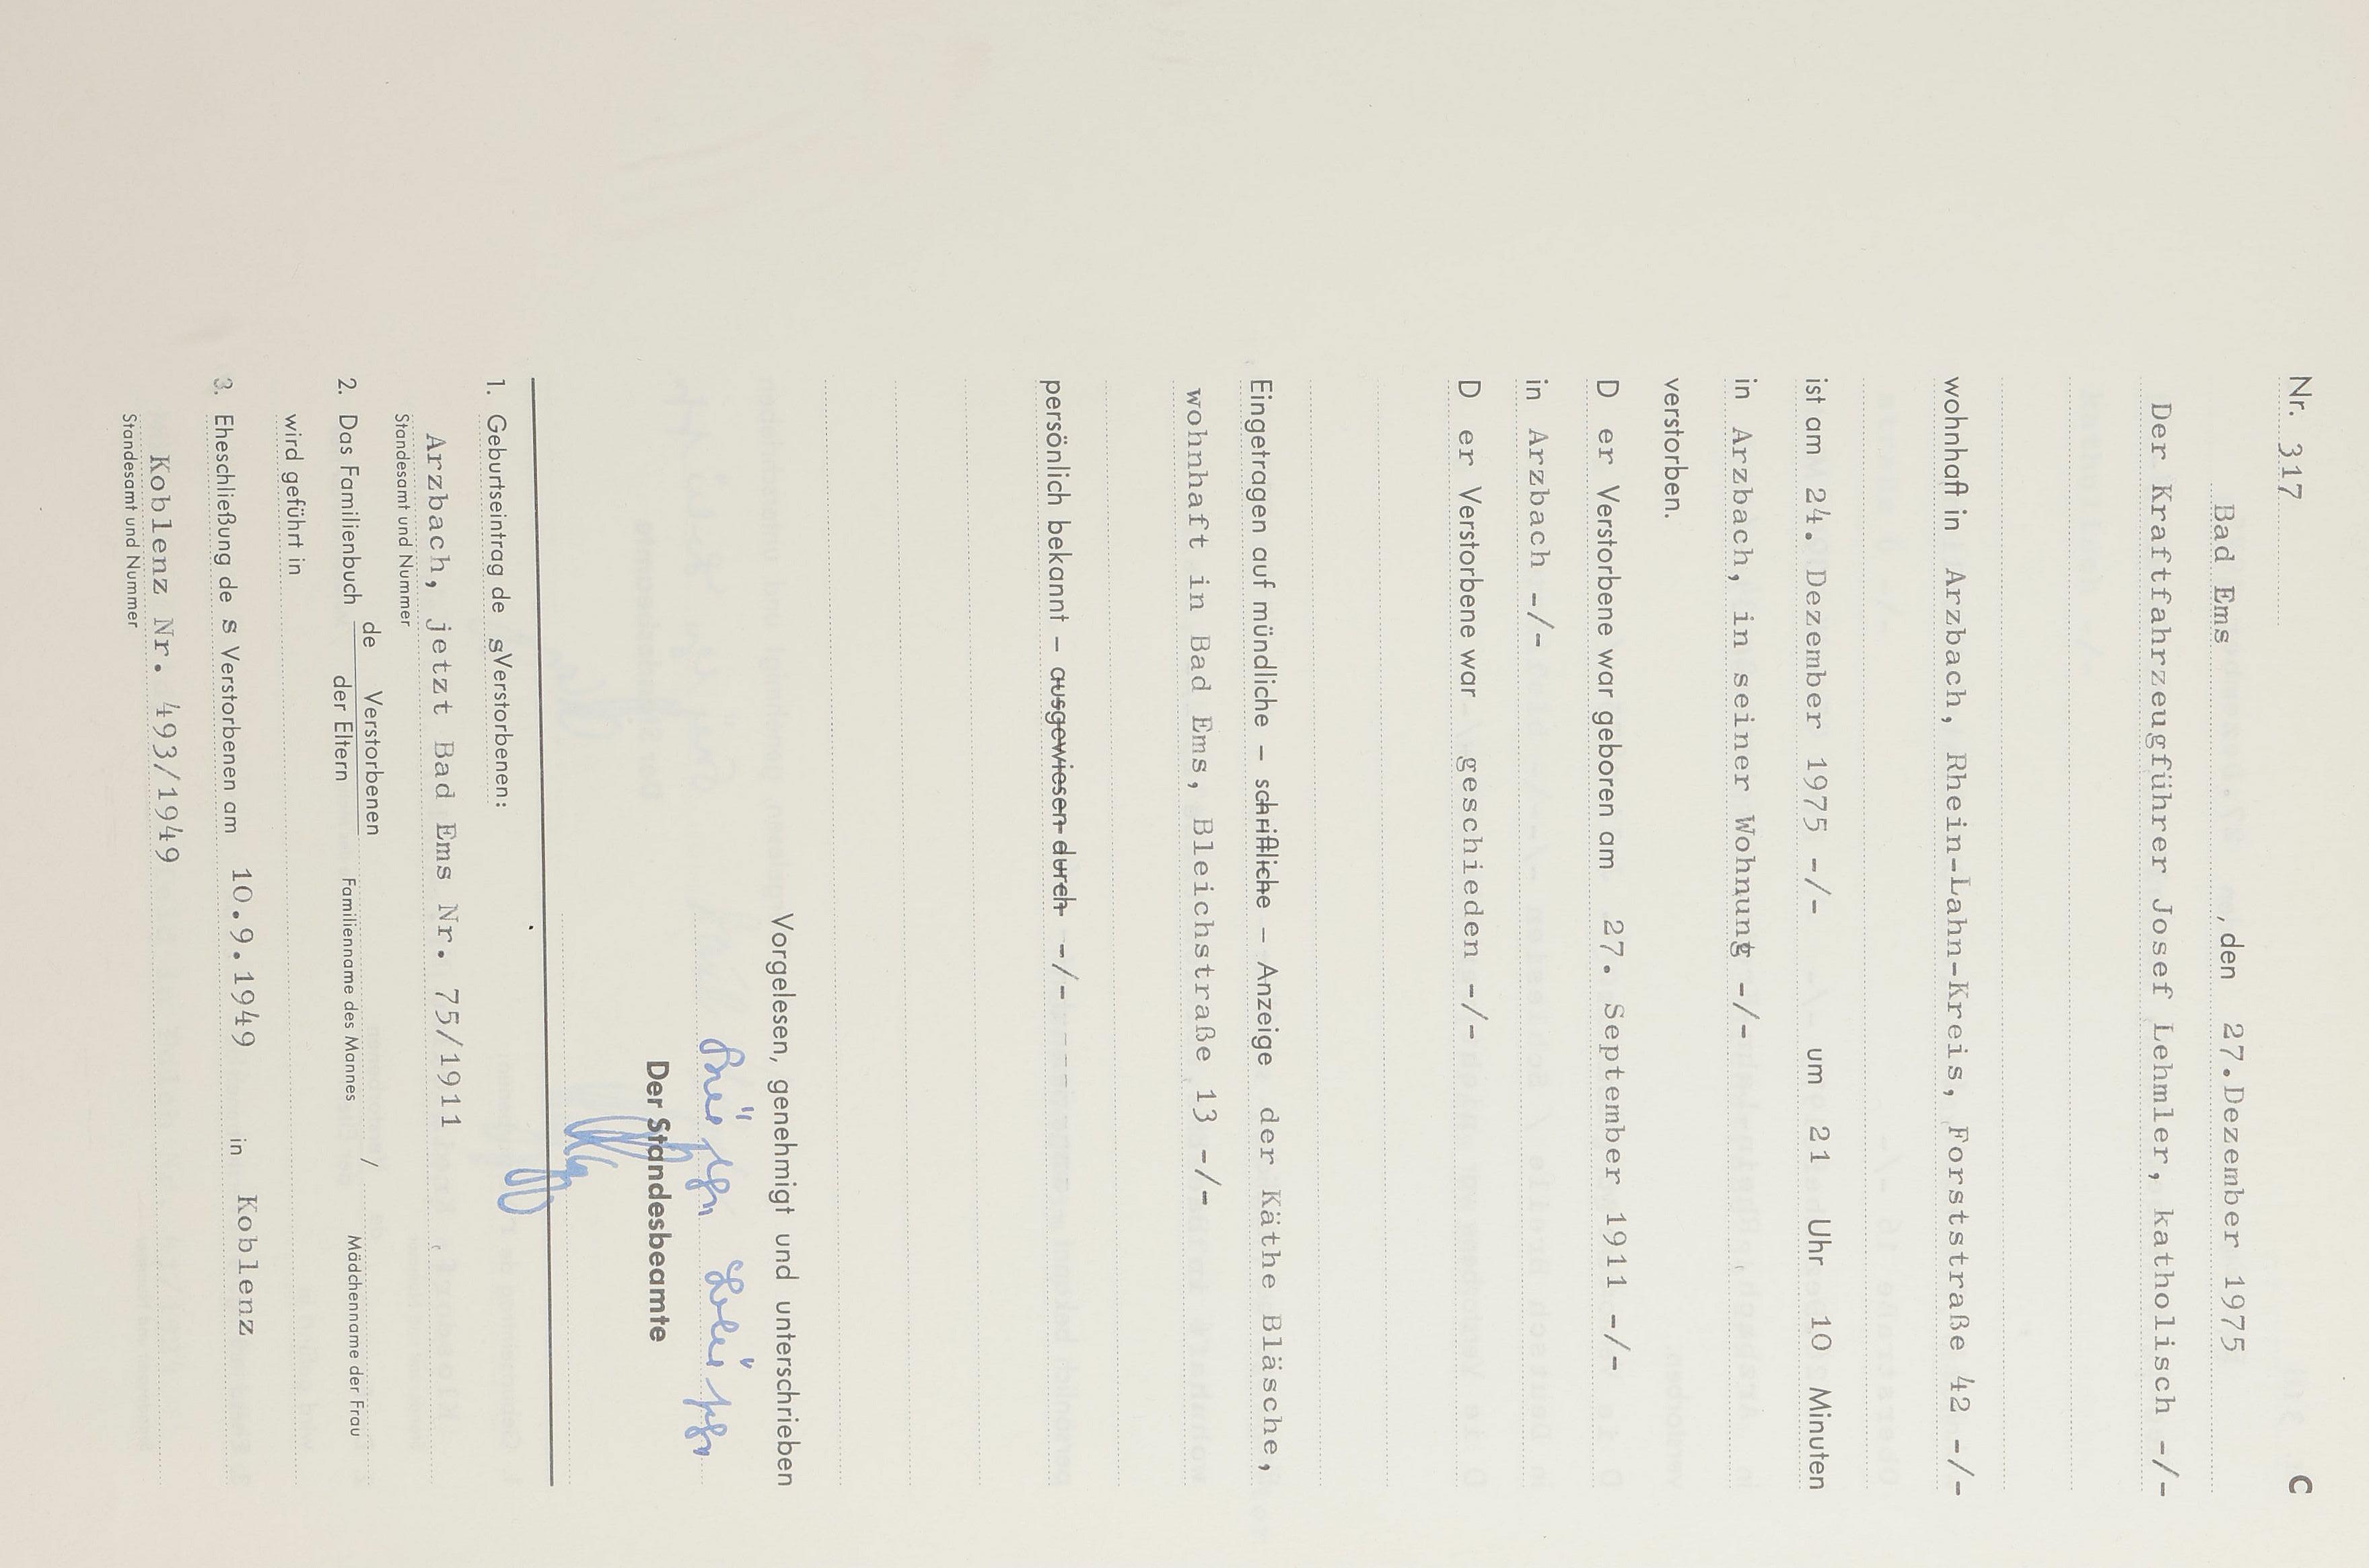 Nr. 317 C
Bad Ems, den 27.Dezember 1975
Der Kraftfahrzeugführer Josef Lehmler, katholisch -/-
wohnhaft in Arzbach, Rhein-Lahn-Kreis, Forststraße 42 -/-
ist am 24. Dezember 1975 -/- um 21 Uhr 10 Minuten
in Arzbach, in seiner Wohnung -/-
verstorben.
D er Verstorbene war geboren am 27. September 1911 -/-
in Arzbach -/-
D er Verstorbene war geschieden -/-
Eingetragen auf mündliche – schriftliche – Anzeige der Käthe Bläsche,
wohnhaft in Bad Ems, Bleichstraße 13 -/-
persönlich bekannt – ausgewiesen durch -/-
Vorgelesen, genehmigt und unterschrieben
Der Standesbeamte
1. Geburtseintrag de s Verstorbenen:
Arzbach, jetzt Bad Ems Nr. 75/1911
Standesamt und Nummer
2. Das Familienbuch de Verstorbenen
der Eltern
Familienname des Mannes / Mädchenname der Frau
wird geführt in
3. Eheschließung de s Verstorbenen am 10.9.1949 in Koblenz
Koblenz Nr. 493/1949
Standesamt und Nummer